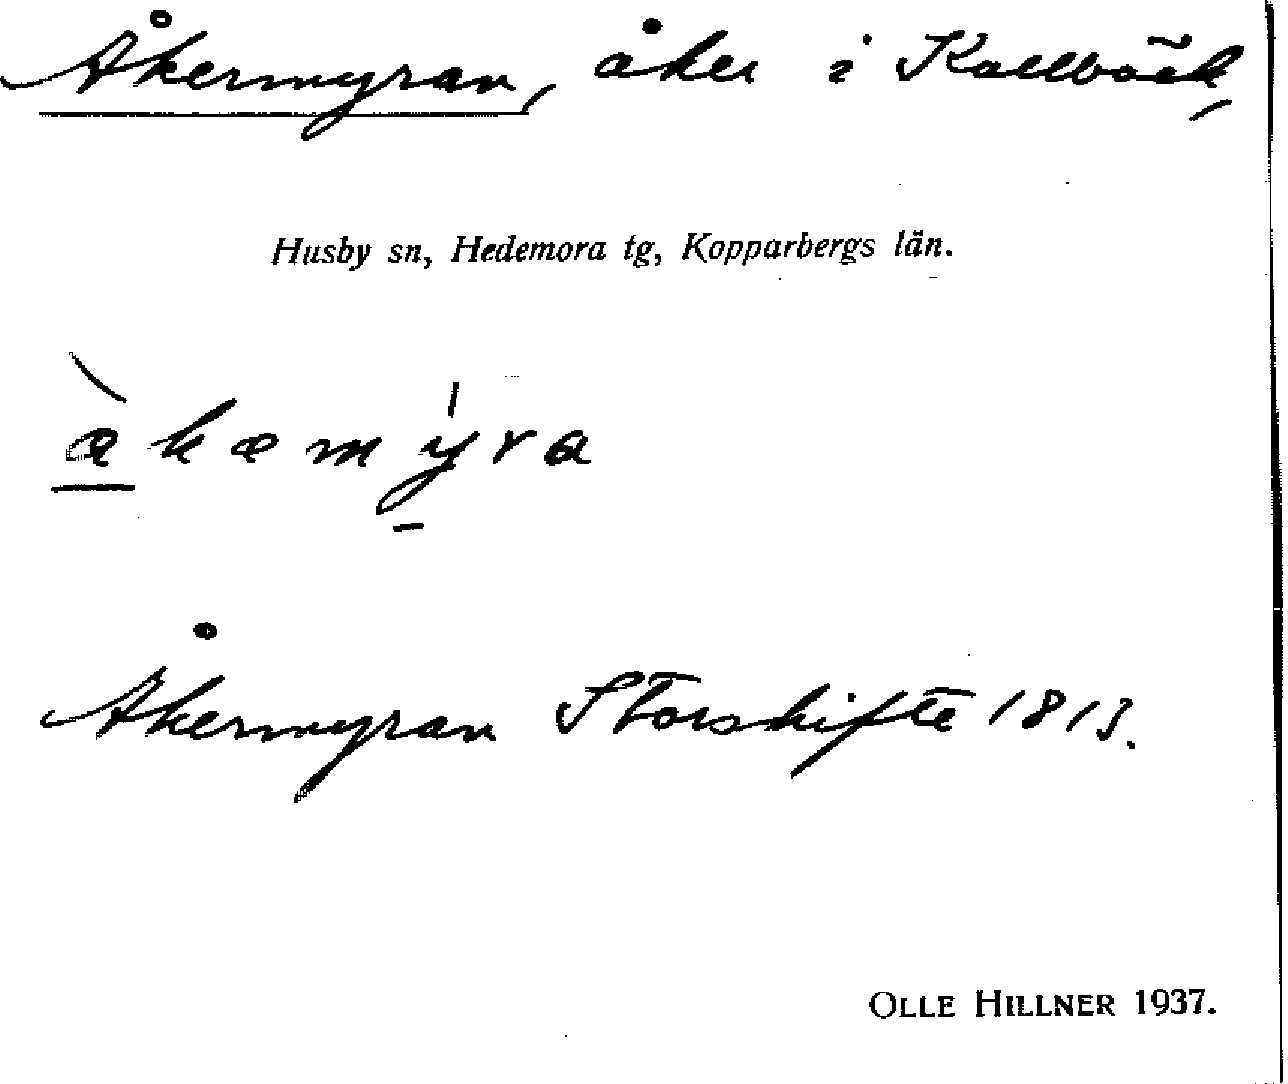 Åkermyran, åker i Kallbäck,
Husby sn, Hedemora tg, Kopparbergs län.
àkæmýra
Åkermyran Storskifte 1813.
OLLE HILLNER 1937.